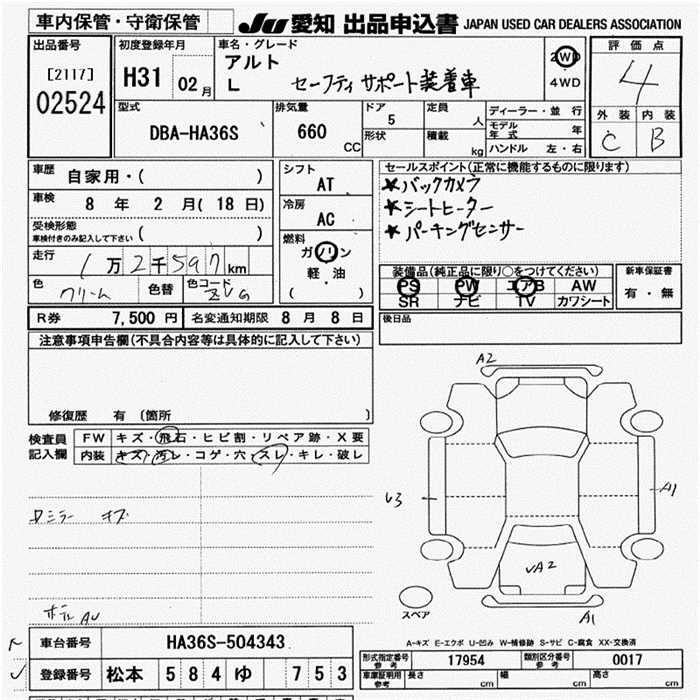 車内保管・守衛保管
JU 愛知 出品申込書 JAPAN USED CAR DEALERS ASSOCIATION
出品番号
[2117]
02524
初度登録年月
H31 02月
車名・グレード
アルト
L セーフティサポート装着車
2WD
4WD
評価点
4
外装 内装
C B
型式
DBA-HA36S
排気量
660 CC
ドア 5
形状
定員 人
積載 kg
ディーラー・並行
モデル年式 年
ハンドル 左・右
車歴 自家用・( )
車検 8 年 2 月( 18 日)
受検形態
車検付きのみ記入して下さい ( )
走行 1万2千597km
色 クリーム 色替 色コード ZVG
シフト
AT
冷房
AC
燃料
ガソリン
軽・油
( )
セールスポイント(正常に機能するものに限ります)
★バックカメラ
★シートヒーター
★パーキングセンサー
装備品(純正品に限り○をつけてください)
PS PW エアB AW
SR ナビ TV カワシート
新車保証書
有・無
R券 7,500 円 名変通知期限 8 月 8 日
後日品
注意事項申告欄(不具合内容等は具体的に記入して下さい)
修復歴 有 (箇所 )
検査員
記入欄
FW キズ・飛石・ヒビ割・リペア跡・X要
内装 キズ・汚レ・コゲ・穴・スレ・キレ・破レ
ミラー キズ
A2
U3
A1
A2
A1
スペア
A-キズ E-エクボ U-凹み W-補修跡 S-サビ C-腐食 XX-交換済
車台番号 HA36S-504343
登録番号 松本 584 ゆ 753
形式指定番号 参考 17954 類別区分番号 参考 0017
車庫証明用 参考 長さ cm 幅 cm 高さ cm